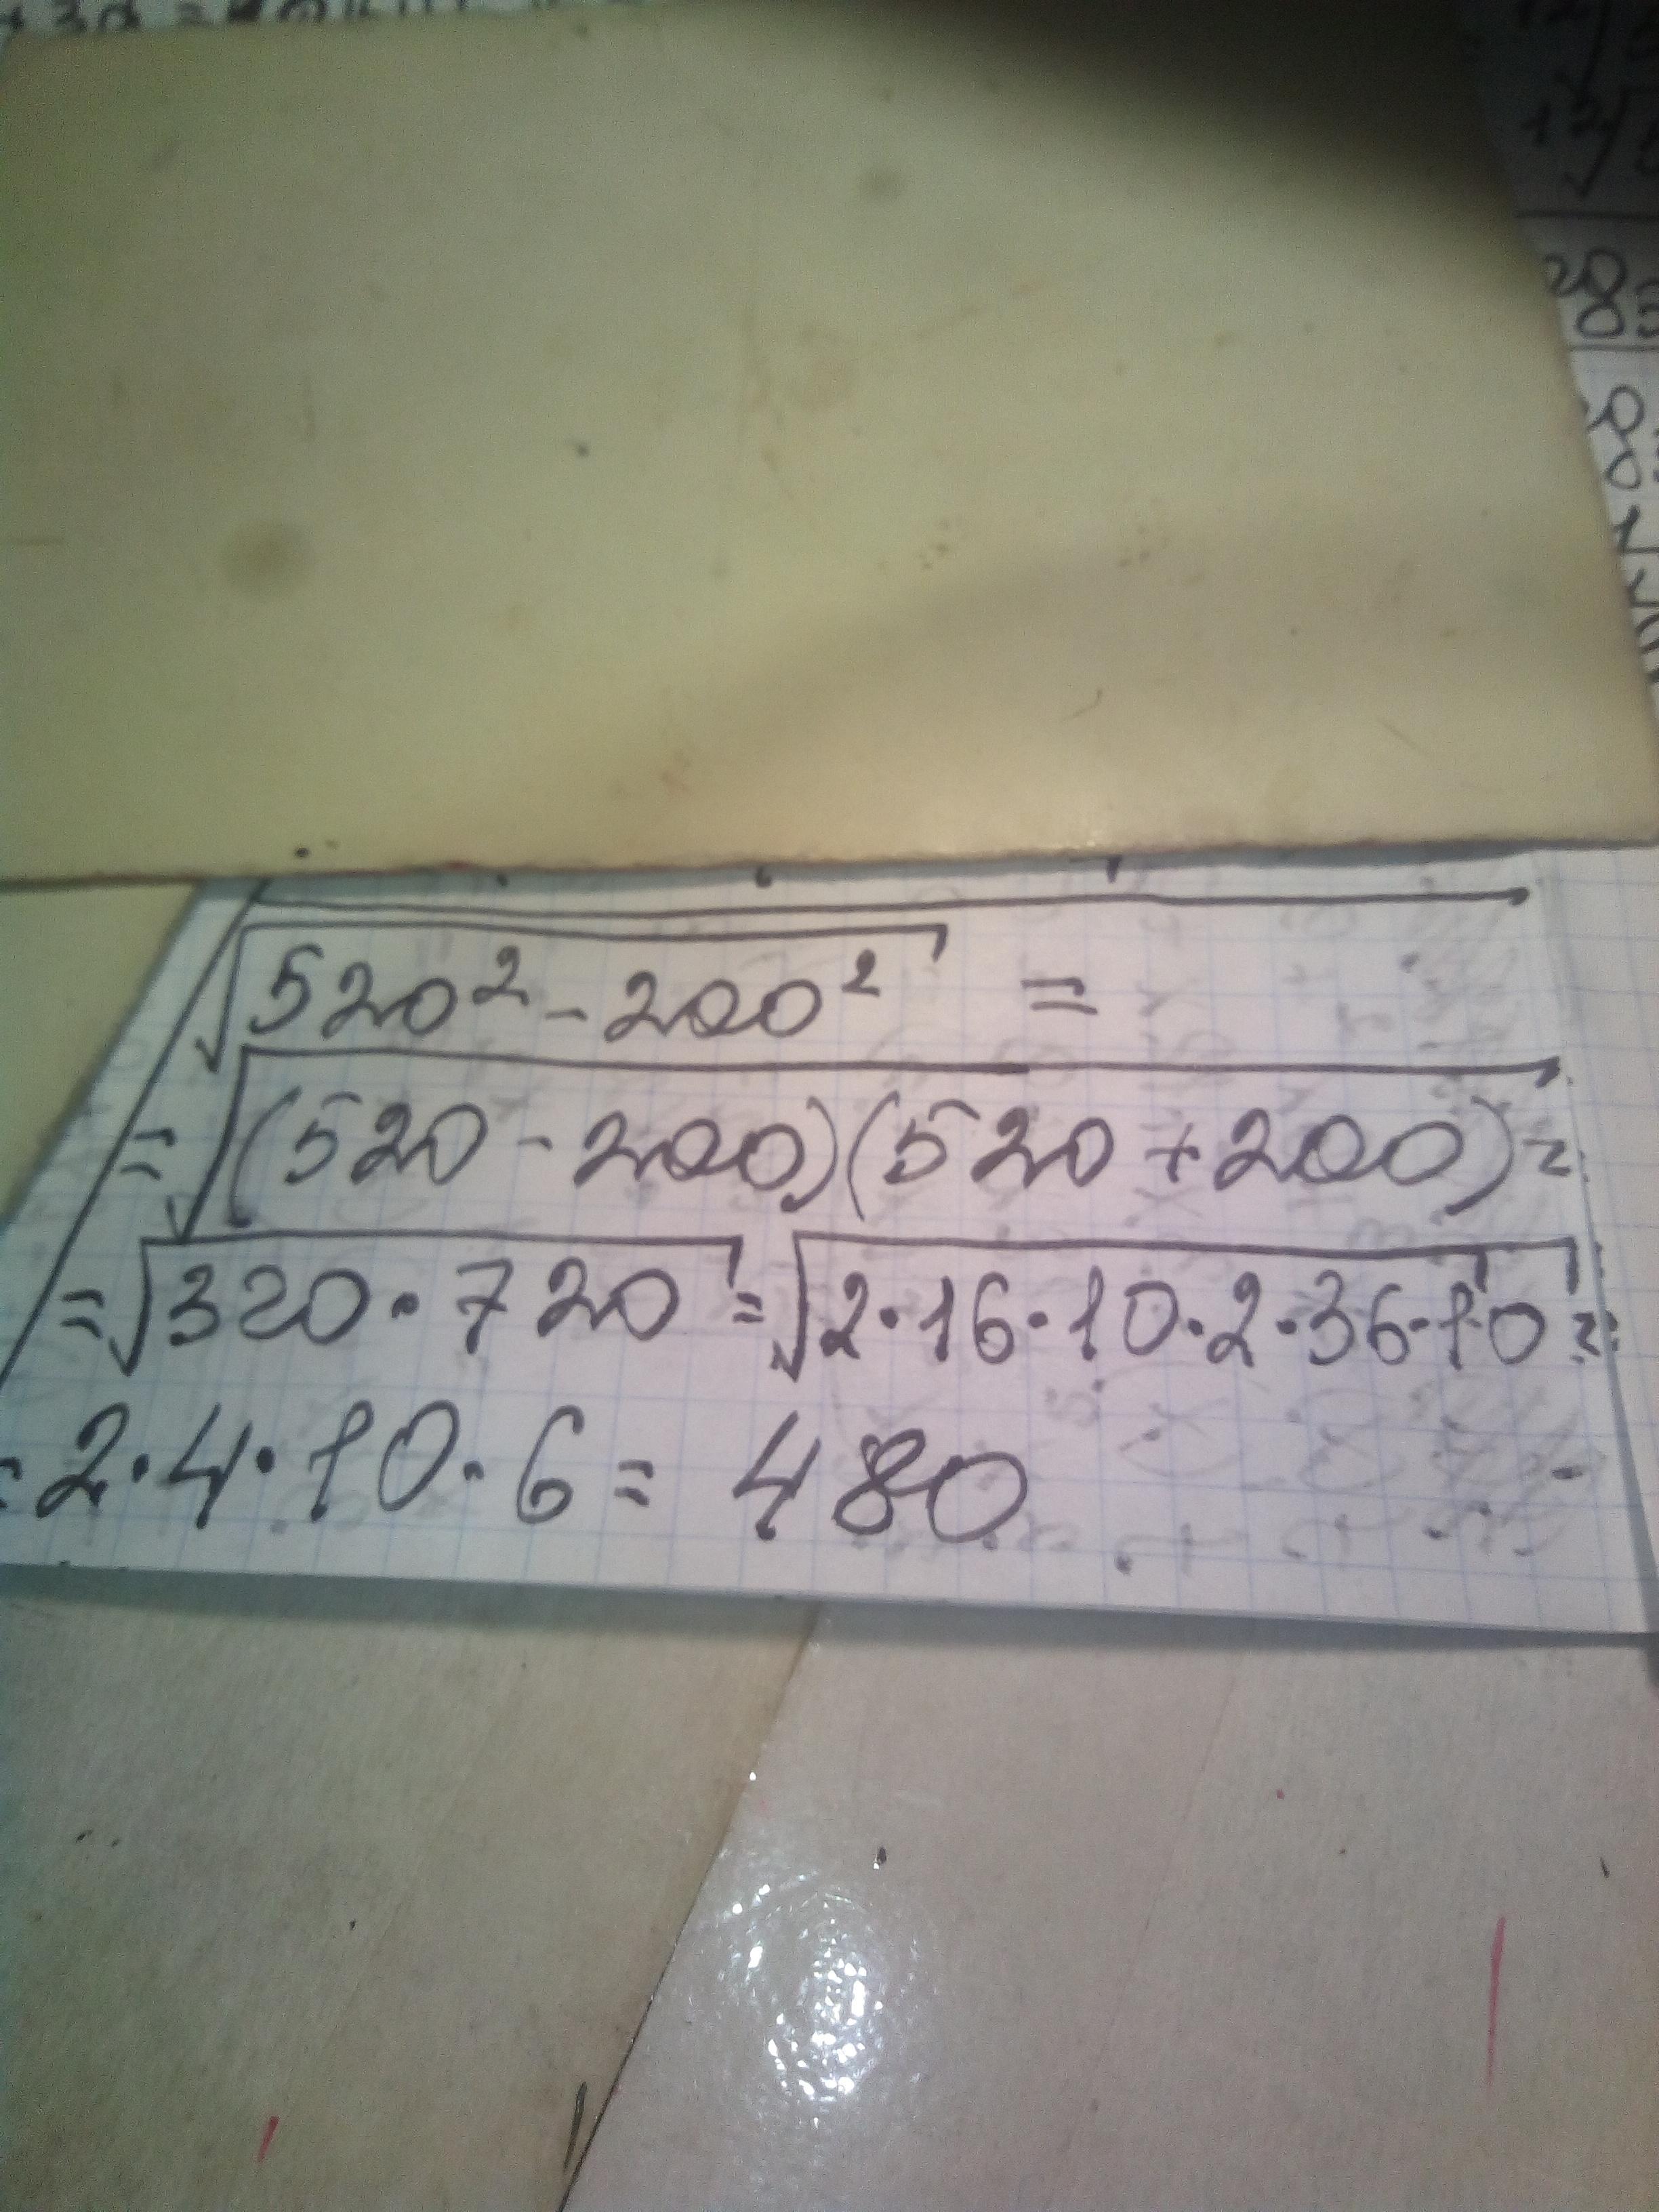 √520² - 200² =
= √(520 - 200)(520 + 200) =
= √320 · 720 = √2 · 16 · 10 · 2 · 36 · 10 =
= 2 · 4 · 10 · 6 = 480